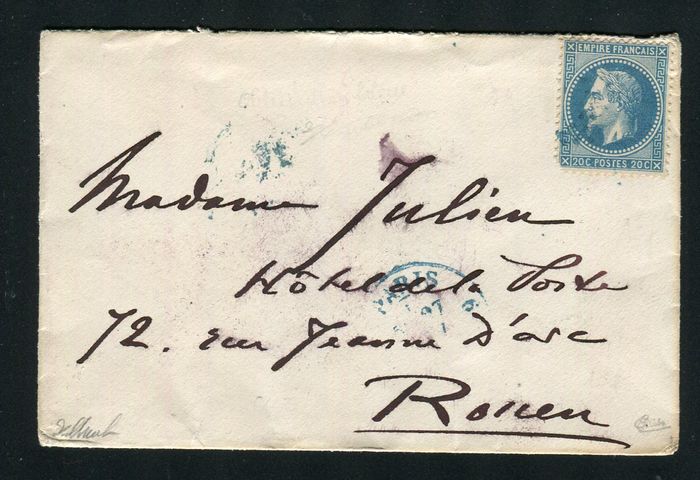 EMPIRE FRANCAIS
20C POSTES 20C
Madame Julien
Hôtel de la Poste
PARIS
72. rue Jeanne D'arc
Rouen